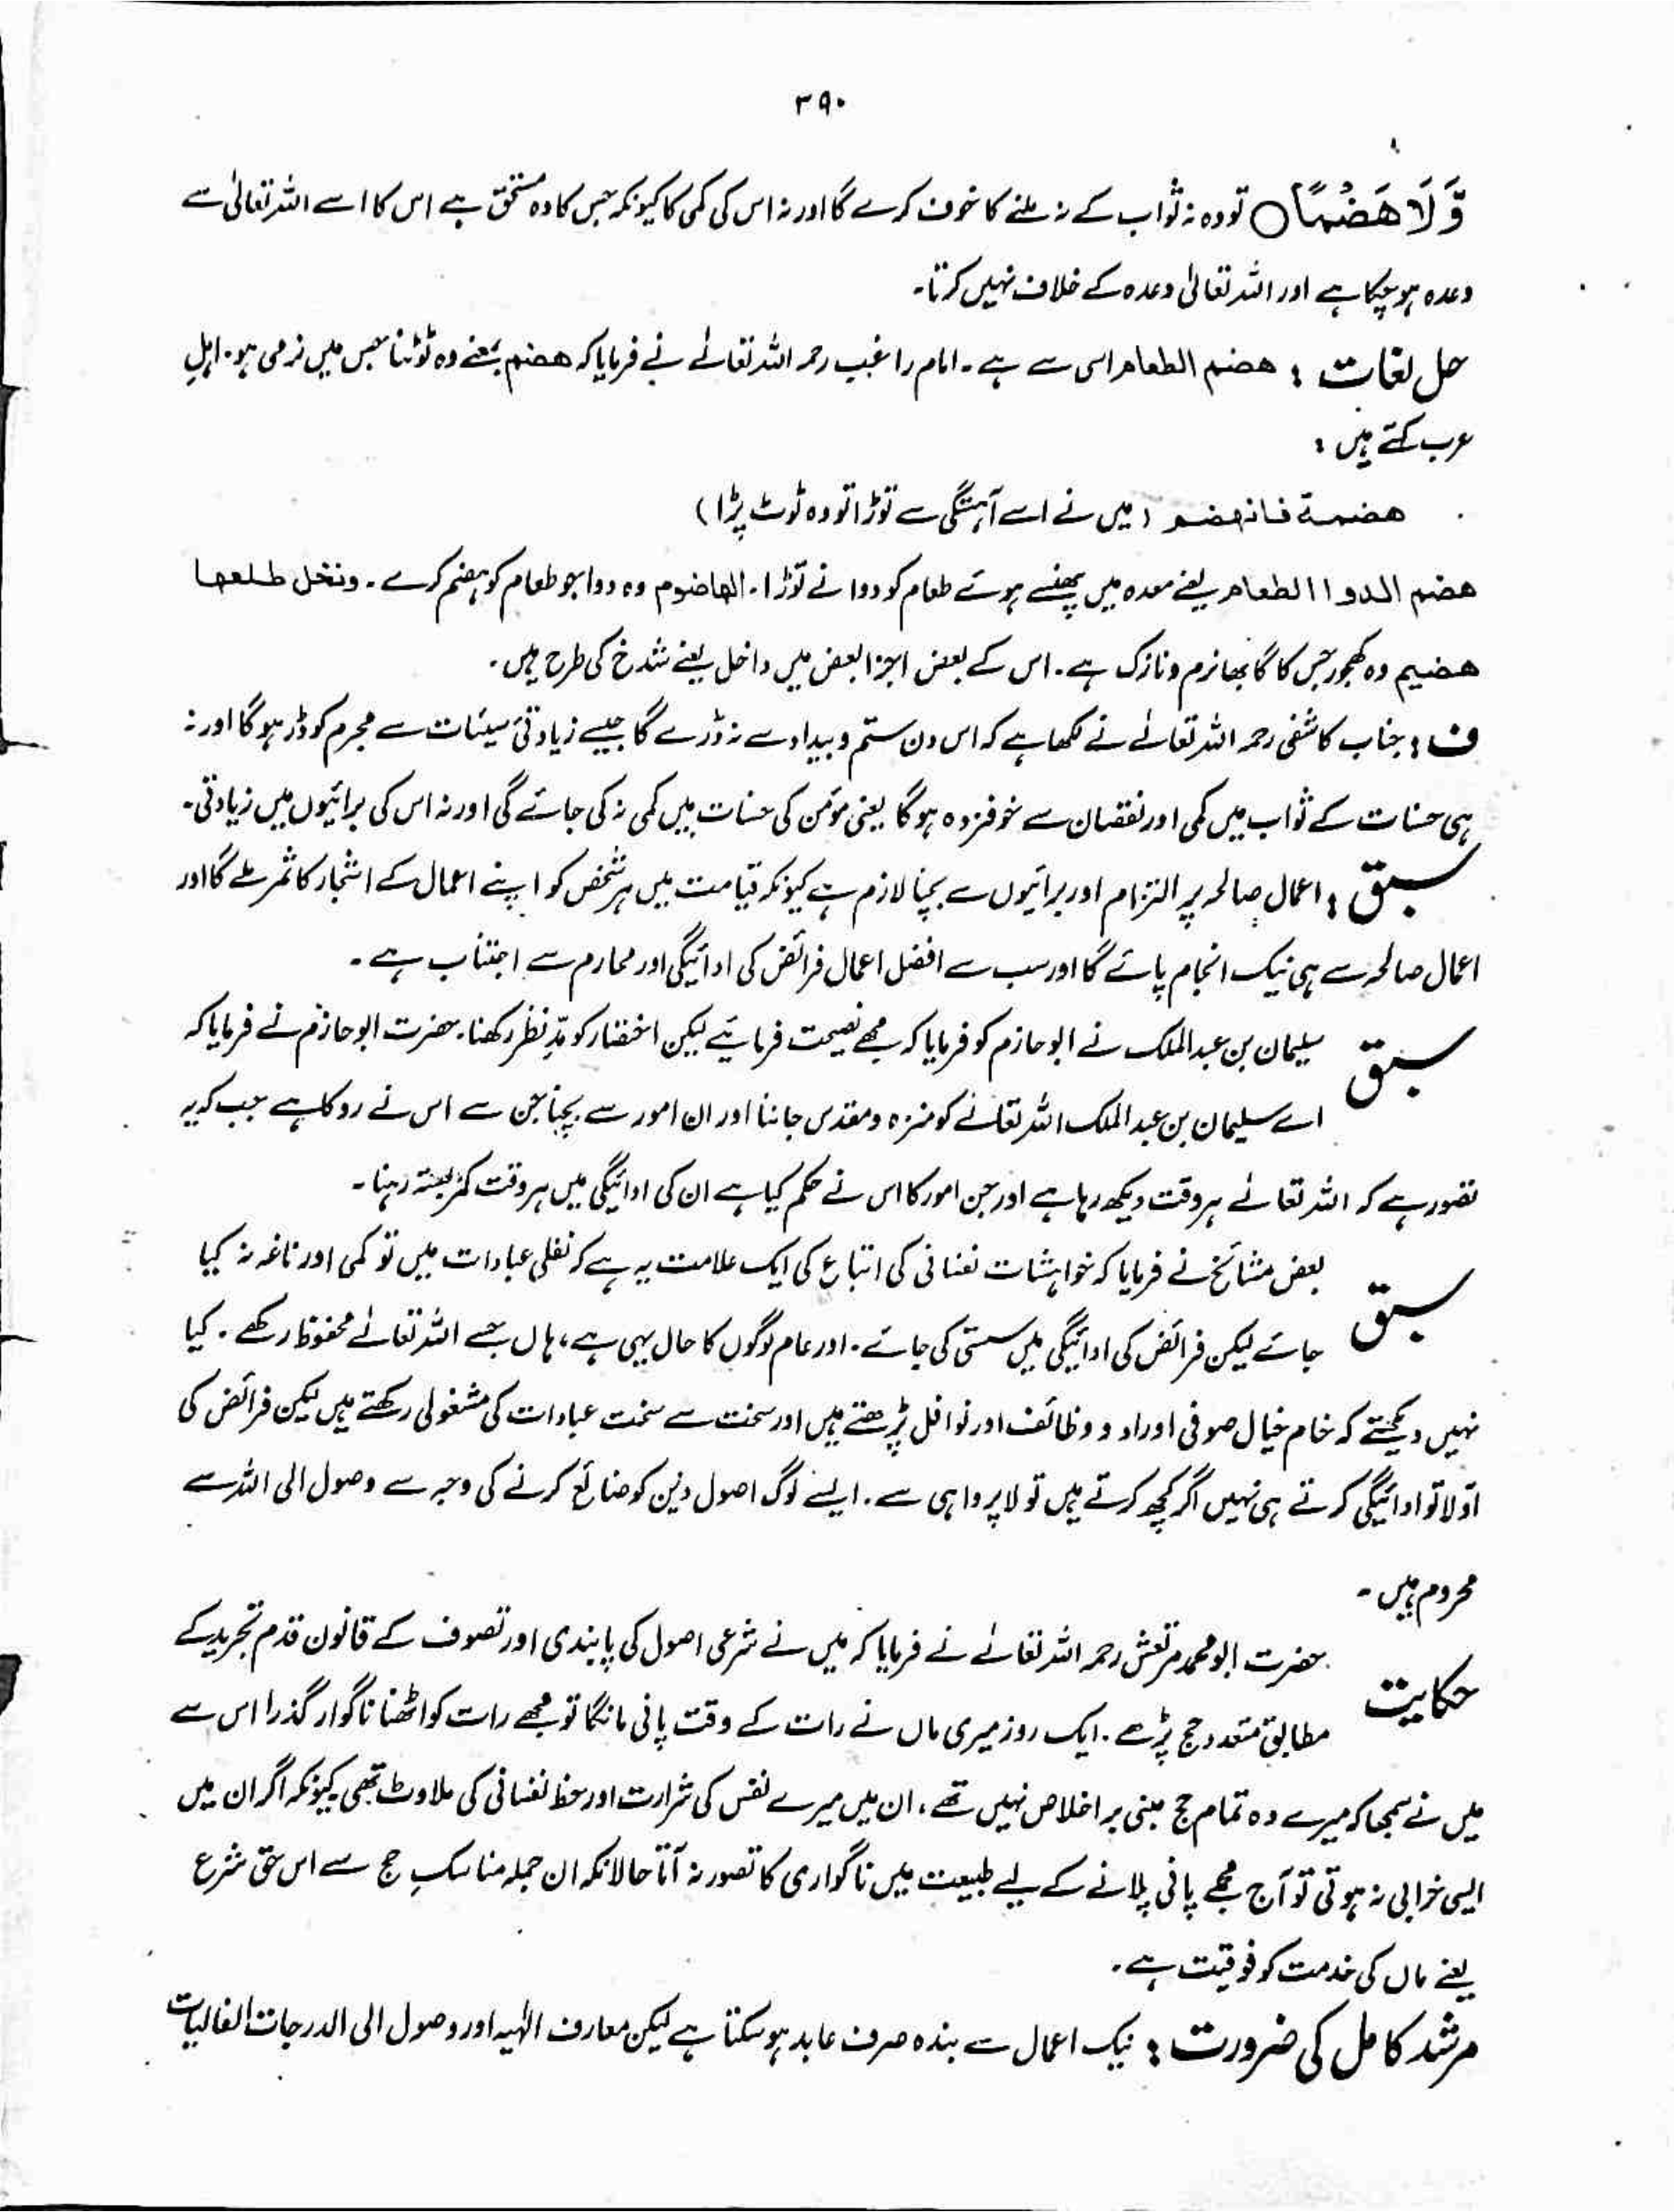 ۳۹۰
وَّلَا هَضْمًا ○ تو وہ نہ ثواب کے نہ ملنے کا خوف کرے گا اور نہ اس کی کمی کا کیونکہ جس کا وہ مستحق ہے اس کا اسے اللہ تعالیٰ سے
وعدہ ہو چکا ہے اور اللہ تعالیٰ وعدہ کے خلاف نہیں کرتا۔
حل لغات : ھضم الطعام اسی سے ہے۔ امام راغب رحمہ اللہ تعالےٰ نے فرمایا کہ ھضم بمعنے وہ ٹوٹنا جس میں نرمی ہو۔ اہلِ
عرب کہتے ہیں :
ھضمۃ فانھضم (میں نے اسے آہستگی سے توڑا تو وہ ٹوٹ پڑا)
ھضم الدوا الطعام یعنے معدہ میں پھنسے ہوئے طعام کو دوا نے توڑا۔ الھاضوم وہ دوا جو طعام کو ہضم کرے۔ ونخل طلعھا
ھضیم وہ کھجور جس کا گابھا نرم و نازک ہے۔ اس کے بعض اجزا بعض میں داخل یعنے شدخ کی طرح ہیں۔
ف : جناب کاشفی رحمہ اللہ تعالےٰ نے لکھا ہے کہ اس دن ستم و بیداد سے نہ ڈرے گا جیسے زیادتیٔ سیئات سے مجرم کو ڈر ہو گا اور نہ
ہی حسنات کے ثواب میں کمی اور نقصان سے خوفزدہ ہو گا یعنی مؤمن کی حسنات میں کمی نہ کی جائے گی اور نہ اس کی برائیوں میں زیادتی۔
سبق : اعمال صالحہ پر التزام اور برائیوں سے بچنا لازم ہے کیونکہ قیامت میں ہر شخص کو اپنے اعمال کے اشجار کا ثمر ملے گا اور
اعمال صالحہ سے ہی نیک انجام پائے گا اور سب سے افضل اعمال فرائض کی ادائیگی اور محارم سے اجتناب ہے۔
سبق سلیمان بن عبدالملک نے ابوحازم کو فرمایا کہ مجھے نصیحت فرمائیے لیکن اختصار کو مدِّنظر رکھنا۔ حضرت ابوحازم نے فرمایا کہ
اے سلیمان بن عبدالملک اللہ تعالےٰ کو منزہ و مقدس جاننا اور ان امور سے بچنا جن سے اس نے روکا ہے جب کہ یہ
تصور ہے کہ اللہ تعالےٰ ہر وقت دیکھ رہا ہے اور جن امور کا اس نے حکم کیا ہے ان کی ادائیگی میں ہر وقت کمربستہ رہنا۔
سبق بعض مشائخ نے فرمایا کہ خواہشات نفسانی کی اتباع کی ایک علامت یہ ہے کہ نفلی عبادات میں تو کمی اور ناغہ نہ کیا
جائے لیکن فرائض کی ادائیگی میں سستی کی جائے۔ اور عام لوگوں کا حال یہی ہے، ہاں جسے اللہ تعالےٰ محفوظ رکھے۔ کیا
نہیں دیکھتے کہ خام خیال صوفی اوراد و وظائف اور نوافل پڑھتے ہیں اور سخت سے سخت عبادات کی مشغولی رکھتے ہیں لیکن فرائض کی
اوّلا تو ادائیگی کرتے ہی نہیں اگر کچھ کرتے ہیں تو لاپرواہی سے۔ ایسے لوگ اصول دین کو ضائع کرنے کی وجہ سے وصول الی اللہ سے
محروم ہیں۔
حکایت حضرت ابومحمد مرتعش رحمہ اللہ تعالےٰ نے فرمایا کہ میں نے شرعی اصول کی پابندی اور تصوف کے قانون قدم تجرید کے
مطابق متعدد حج پڑھے۔ ایک روز میری ماں نے رات کے وقت پانی مانگا تو مجھے رات کو اٹھنا ناگوار گذرا اس سے
میں نے سمجھا کہ میرے وہ تمام حج مبنی بر اخلاص نہیں تھے، ان میں میرے نفس کی شرارت اور حظ نفسانی کی ملاوٹ تھی کیونکہ اگر ان میں
ایسی خرابی نہ ہوتی تو آج مجھے پانی پلانے کے لیے طبیعت میں ناگواری کا تصور نہ آتا حالانکہ ان جملہ مناسکِ حج سے اس حق شرع
یعنے ماں کی خدمت کو فوقیت ہے۔
مرشد کامل کی ضرورت : نیک اعمال سے بندہ صرف عابد ہو سکتا ہے لیکن معارف الٰہیہ اور وصول الی الدرجات العالیات